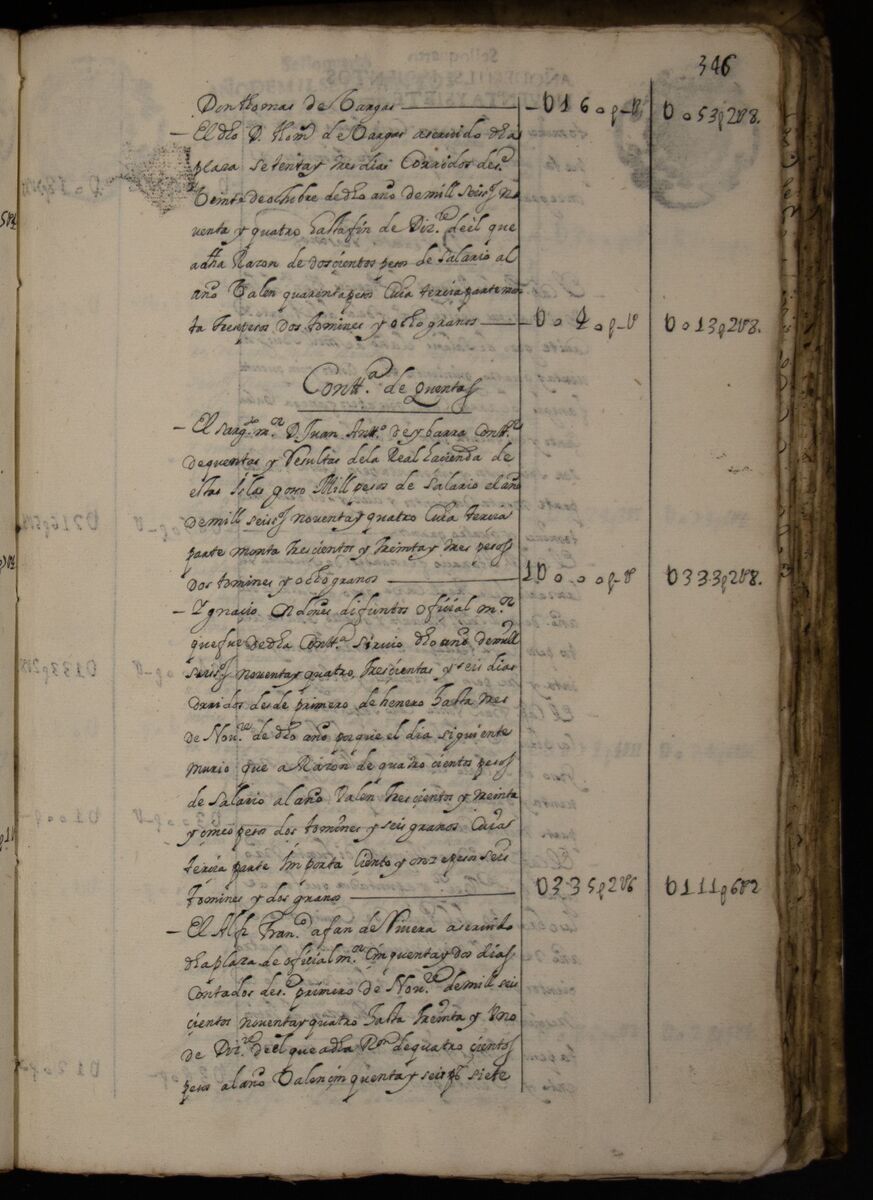 346
Don thomas de Vargas — U160p–U U053p2U8.
– El dho D. thom.s de Vargas a servido dha
plaza setenta y tres dias Corridos desde
Veinte de octubre de dho año de mill seiss.s no
venta y quatro hasta fin de Diz.re de el que
a dha Razon de doscientos pesos de salario al
año Valen quarenta pesos Cuia tercia parte mon
ta trese pesos Dos tomines y ocho granos — U040p–U U013p2U8.
Contt.a de quentas
– El sarg.to m.or D. Juan Antt.o de ybarra Contt.or
de quentas y Resultas de la Real hacienda de
estas Islas gozo Mill pesos de salario el año
de mill seiss.s noventa y quatro Cuia tercia
parte monta trescientos y treinta y tres pesos
Dos tomines y ocho granos — 1U000p–U U333p2U8.
– Ygnacio Ordoñes difuntos oficial m.or
que fue de dha Contt.a sirvio dho año de mill
seiss.s noventa y quatro, trescientos y seis dias
Corridos desde primero de henero hasta tres
de Nov.re de dho año porque el dia siguiente
murio que a Razon de quatro cientos pesos
de salario al año Valen trescientos y treinta
y cinco pesos dos tomines y seis granos Cuias
tercia parte Importa Ciento y onze pesos seis
tomines y dos granos — U335p2U6 U111p6U2
– El Alfz Fran.co afan de Rivera a servido
dha plaza de oficial m.or Cinquenta y dos dias
Contados des.e primero de Nov.re de mill seis
cientos noventa y quatro hasta treinta y Uno
de Diz.re de el que a dha R.on de quatro cientos
pesos al año Valen cinquenta y seis ps siete